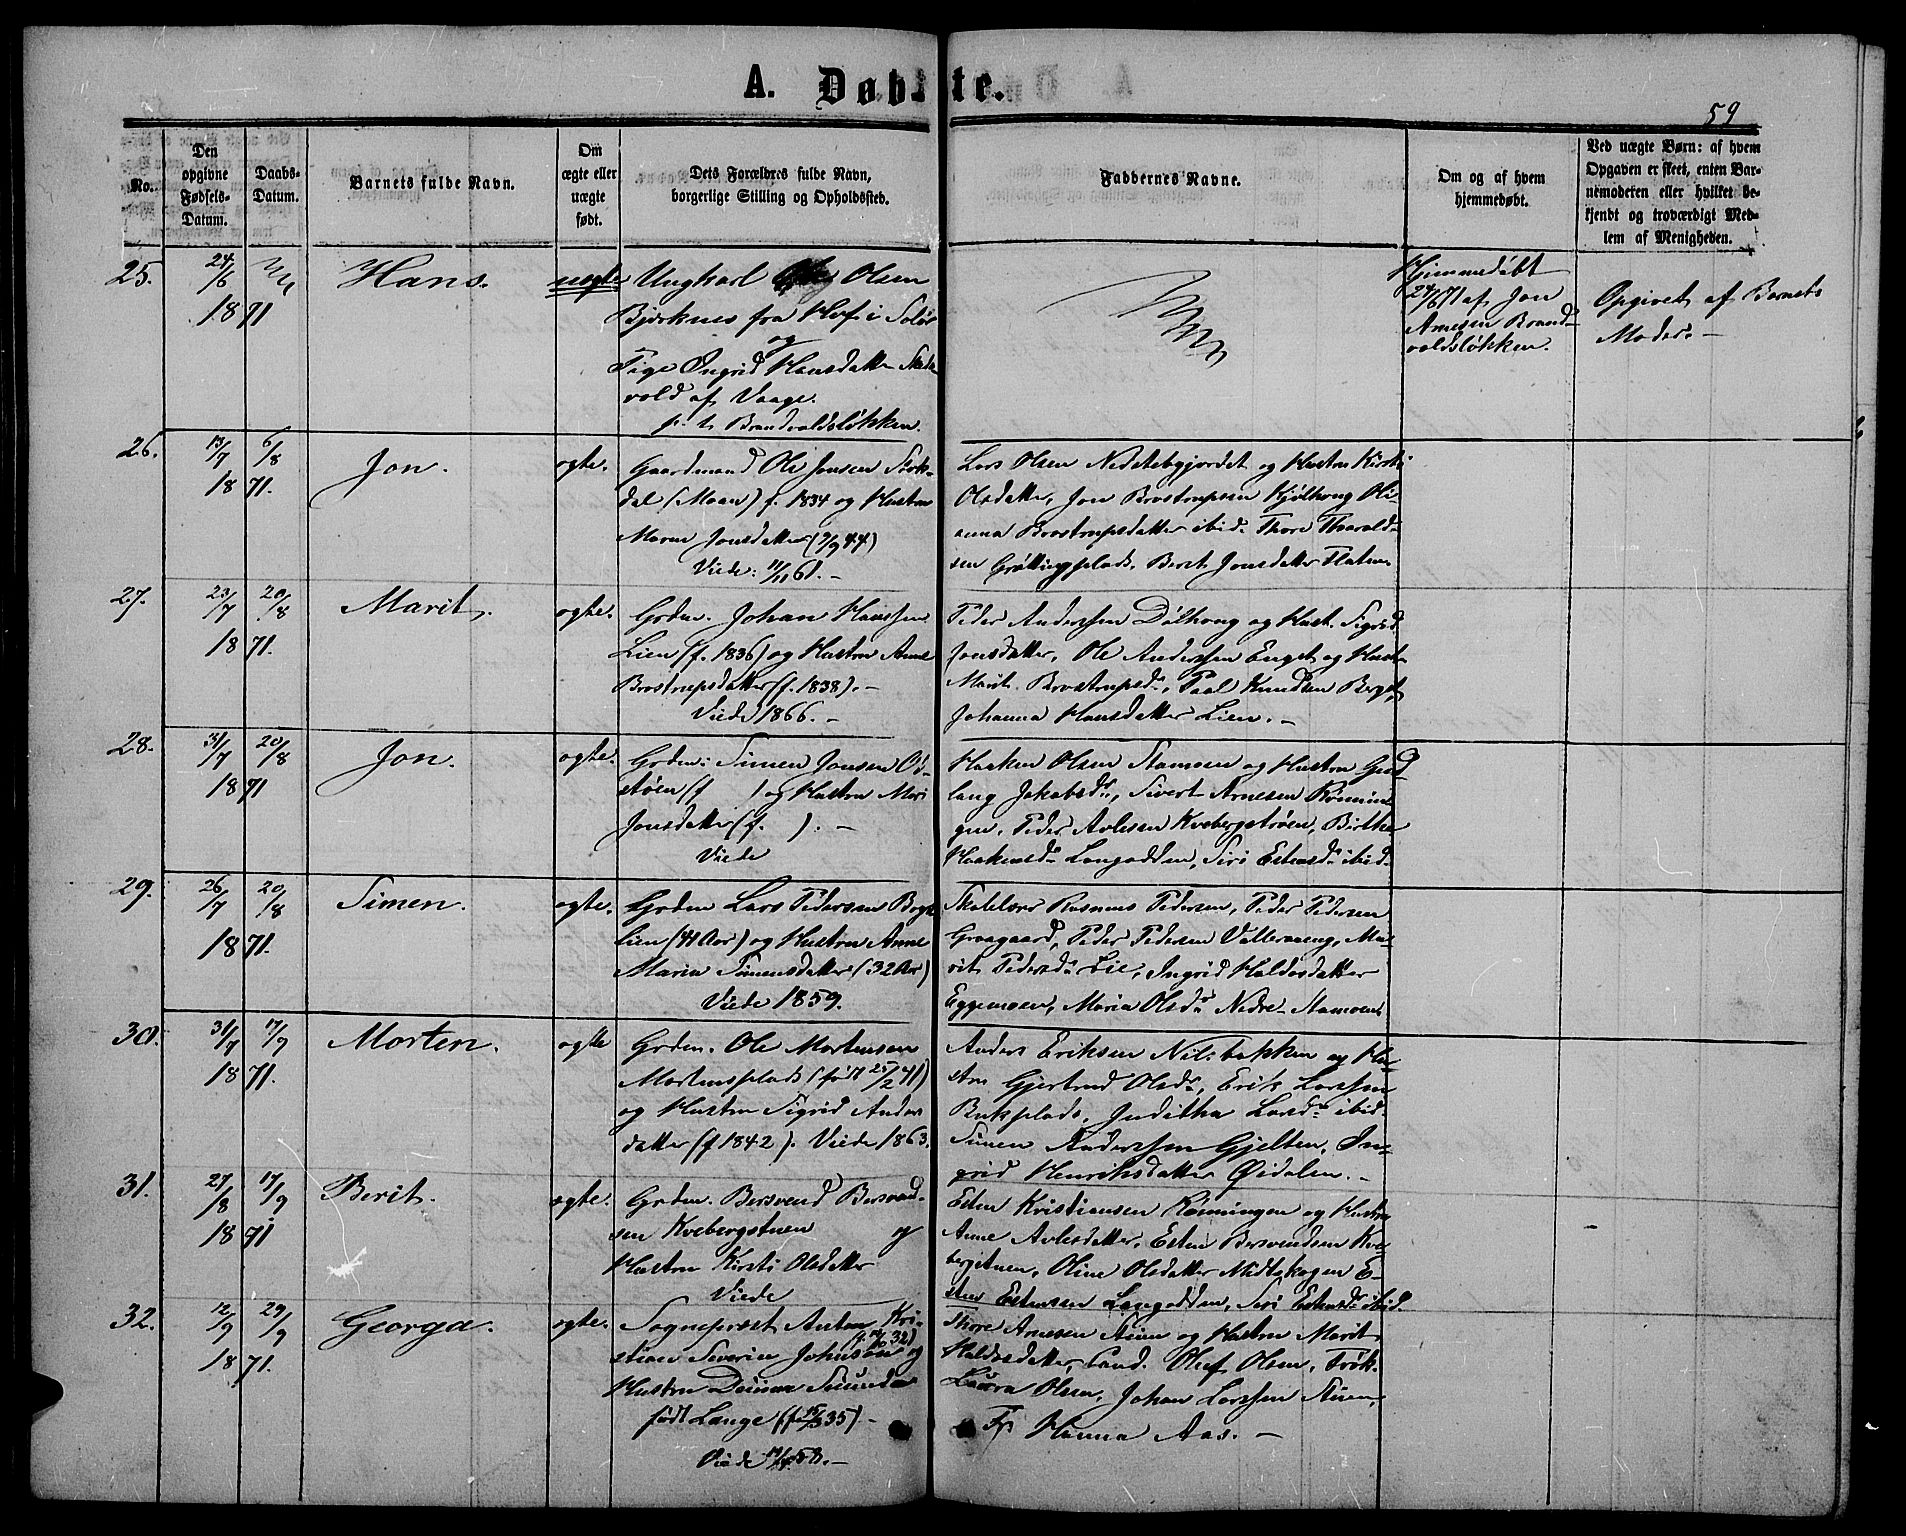 A. Døbte.
59
No.
Den opgivne Fødsels-Datum.
Daabs-Datum.
Barnets fulde Navn.
Om ægte eller uægte født.
Dets Forældres fulde Navn, borgerlige Stilling og Opholdssted.
Faddernes Navne.
Om og af hvem hjemmedøbt.
Ved uægte Børn: af hvem Opgaven er skeet, enten Barnemoderen eller hvilket bekjendt og troværdigt Medlem af Menigheden.
25. 24/6 1871 Hans. uægte
Ungkarl Olsen
Bjørknes fra Hof i Solør
og
Pige Ingrid Hansdatter
vold af Vaage.
p. t. Brandvoldsløkken.
Hjemmedøbt
24/6 71 af Jon
Arnesen Brand-
voldsløkken.
Opgivet af Barnets
Moder. -
26. 13/7 6/8 1871. Jon. ægte.
Gaardmand Ole Jonsen
dal (Moan) f. 1834 og Hustru
Maren Jonsdatter (9/9 44)
Viede: 11/11 61. -
Lars Olsen og Hustru Kirsti
Olsdatter, Jon Brostrupsen Kjølhoug Oli-
anna Brostrupsdatter ibid. Thore Tharald-
sen Grøttingplads, Beret Jonsdatter
27. 23/7 20/8 1871. Marit. ægte.
Grdm. Johan Hanssen
Lien (f. 1836) og Hustru Anne
Brostrupsdatter (f. 1838). -
Viede 1866. -
Peder Anderssen Dølhoug og Hust. Sigrid
Jonsdatter, Ole Anderssen Enget og Hust.
Marit Brostrupsdr, Paal Knudsen Berget,
Johanna Hansdatter Lien. -
28. 31/7 20/8 1871 Jon. ægte.
Grdm: Simen Jonsen Od-
støen (f ) og Hustru Mari
Jonsdatter (f. ). -
Viede
Haaken Olsen Stamoen og Hustru Gud-
lang Jakobsdr, Sivert Arnesen Rønnin-
gen, Peder Avlesen Kvebergstrøen, Birthe
Haakensdr Langodden, Siri Estensdr ibid.
29. 26/7 20/8 1871. Simen. ægte.
Grdm Lars Pedersen
Lien (41 Aar) og Hustru Anne
Maria Simensdatter (32 Aar)
Viede 1859.
Skolelærer Rasmus Pedersen, Peder Pedersen
Graagaard, Peder Pedersen Vollervaeng, Ma-
rit Pedersdr Lie, Ingrid Haldosdatter
Eggemoen, Maria Olsdr Nedre-Stamoen
30. 31/7 17/9 1871. Morten. ægte
Grdm. Ole Mortensen
Mortensplads (født 25/2 41)
og Hustru Sigrid Anders
datter (f 1842). Viede 1863.
Anders Eriksen Nilsbakken og Hu-
stru Gjertrud Olsdr, Erik Larssen
Buksplads, Juditha Larsdr ibid.
Simen Anderssen Gjelten, In-
grid Henriksdatter Øidalen. -
31. 27/8 17/9 1871 Berit. ægte.
Grdm. Bersvend Bersvend-
sen Kvebergstuen og
Hustru Kirsti Olsdatter
Viede
Esten Kristiansen Rønningen og Hustru
Anne Avlesdatter, Esten Bersvendsen Kve-
bergstuen, Oline Olsdatter Midtskogen E-
sten Estensen Langodden, Siri Estensdr ibid.
32. 12/9 29/9 1871. Georga. ægte.
Sogneprest Anton Kri-
stian Severin Johnson og
Hustru
født Lange (f 15/3 35) -
Viede
Thore Arnesen Stuen og Hustru Marit
Haldosdatter, Cand. Oluf Olsen, Frøk.
Laura Olsen, Johan Larssen Stuen,
Fr. Hanna Aas. -